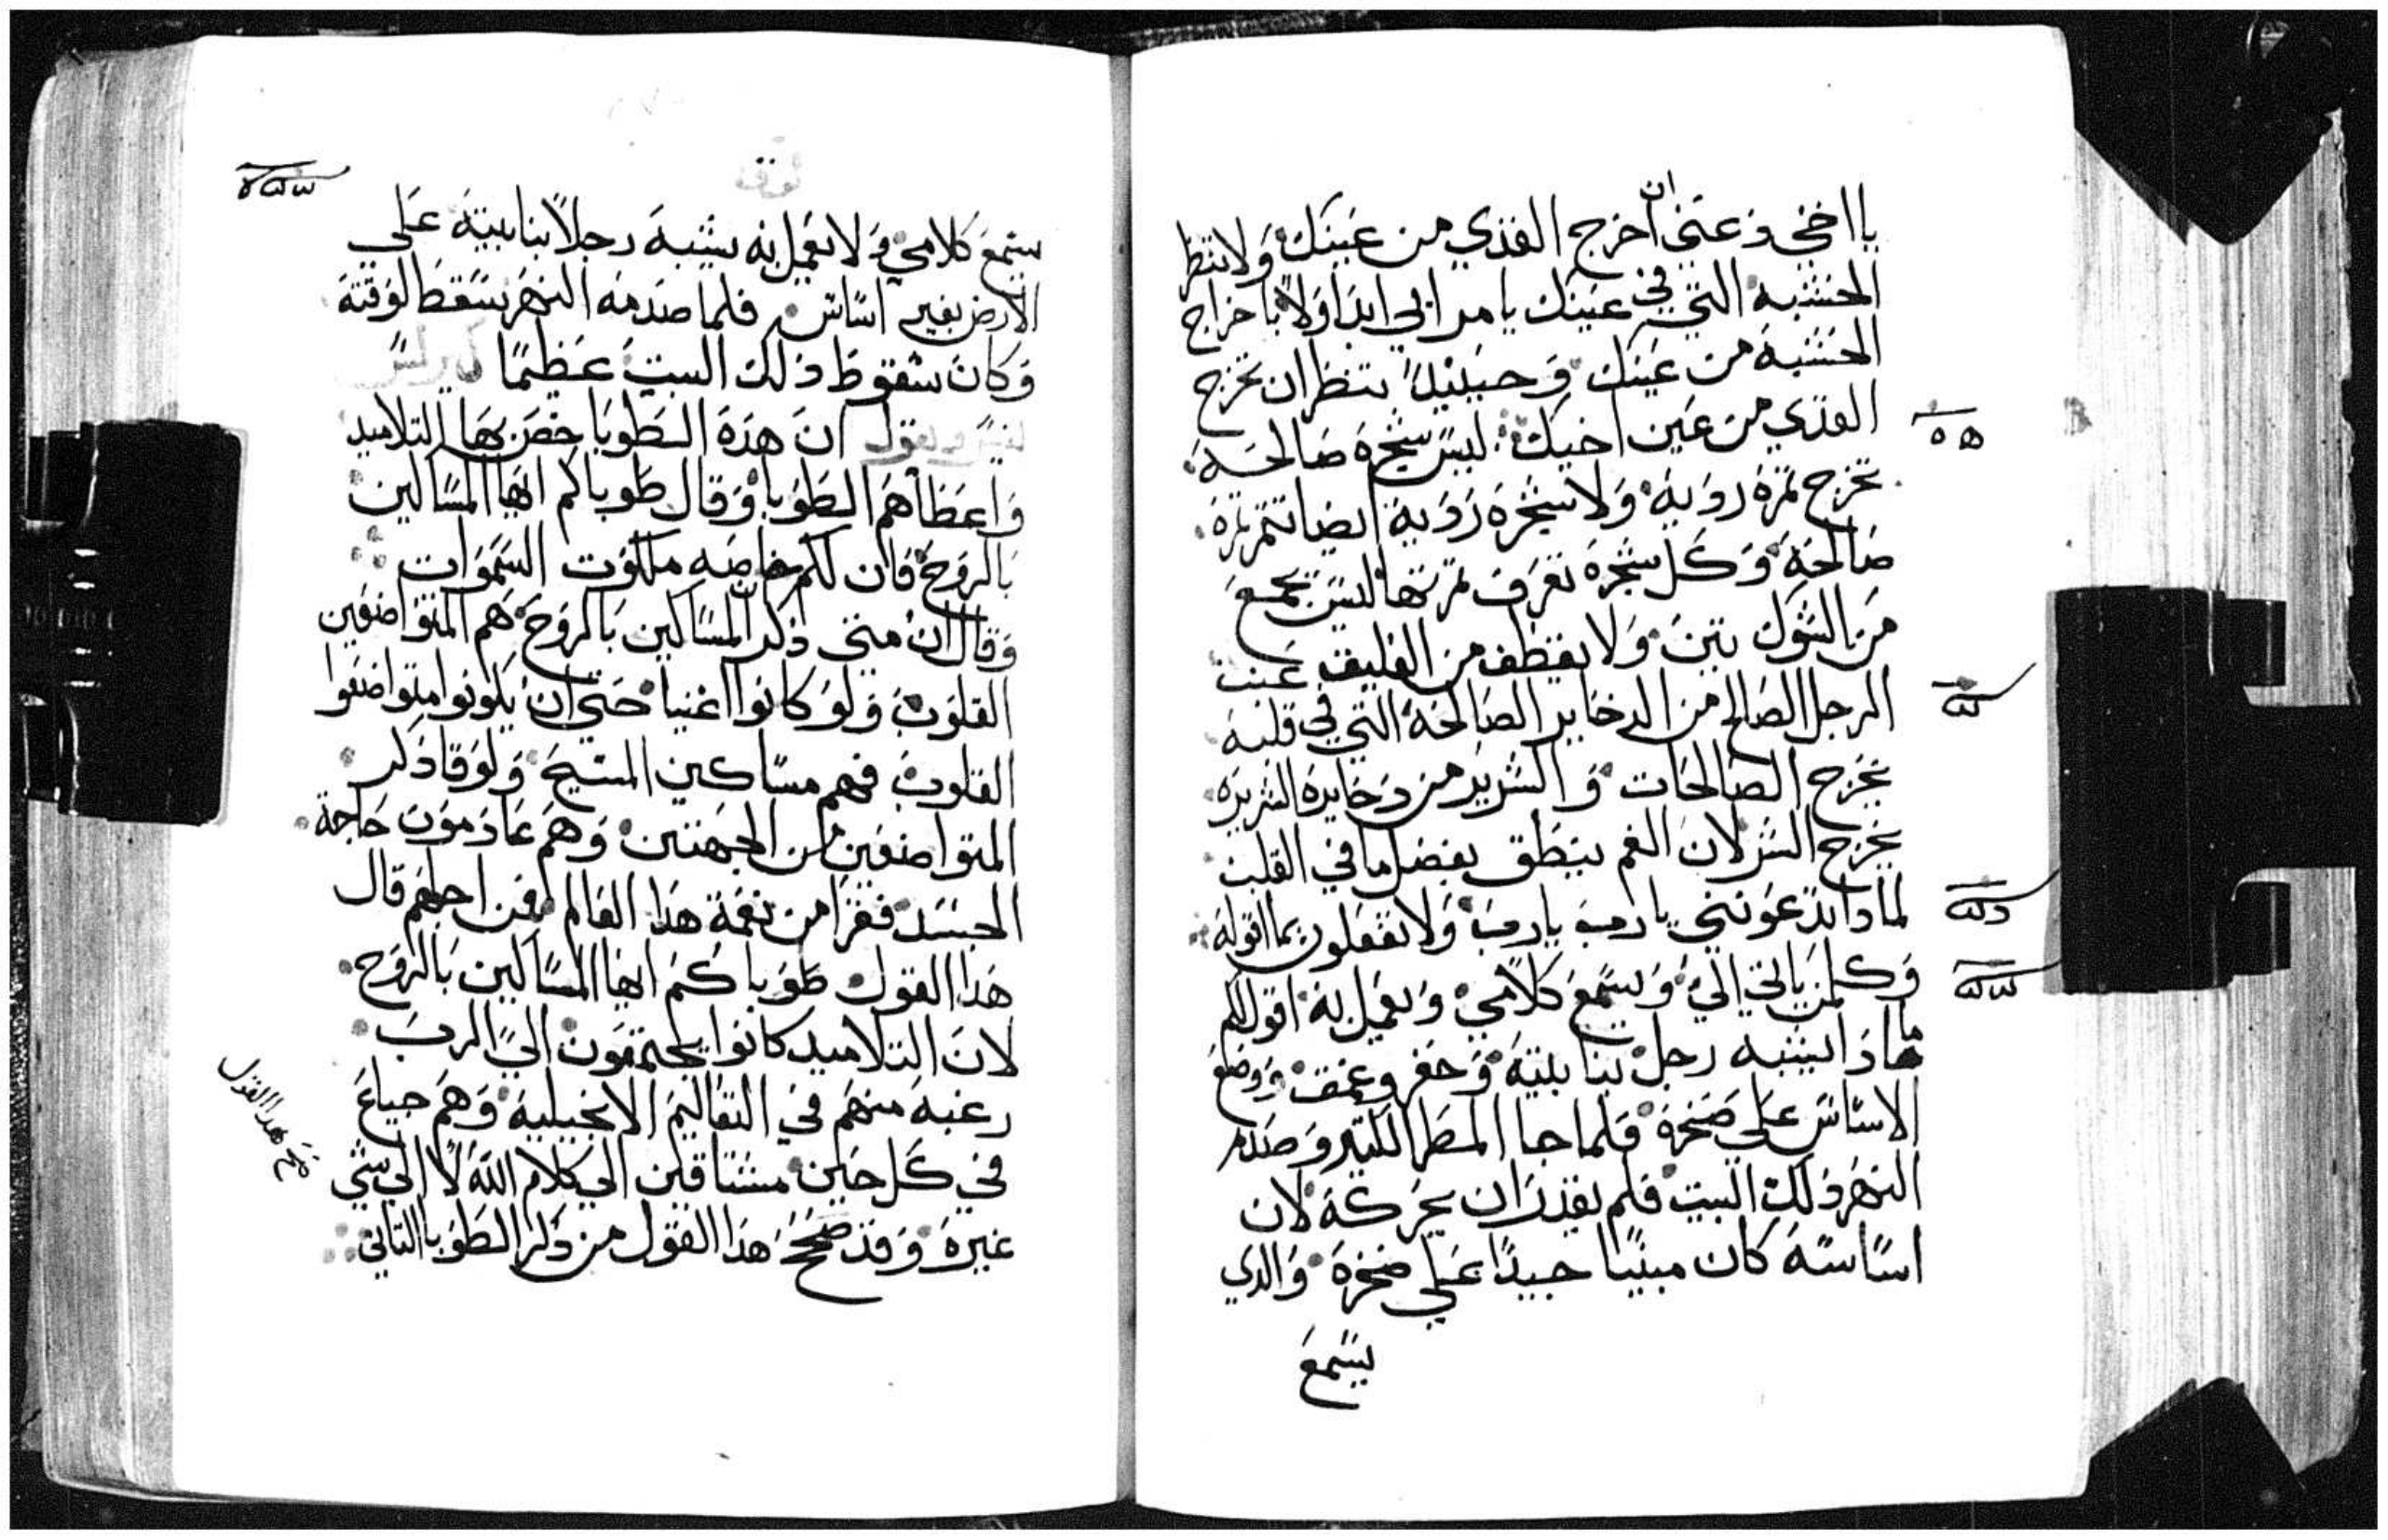 يا اخي دعني ان اخرج القدي من عينك ولا تنظر
الخشبه التي في عينك يا مرايي ابدا اولا باخراج
الخشبه من عينك وحينيدٍ تنظر ان تخرج
القدي من عين اخيك ليس شجره صالحه
تخرج تمره رديه ولا شجره رديه ايضا تتمر تمره
صالحه وكل شجره تعرف من تمرتها ليس يجمع
من الشوك تين ولا يقطف من العليق عنب
الرجل الصالح من الدخاير الصالحه التي في قلبه
يخرج الصالحات والشرير من دخايره الشريره
يخرج الشر لان الفم ينطق بفضل ما في القلب
لمادا تدعونني يا رب يا رب ولا تفعلون بما اقوله
وكلمن ياتي الي ويسمع كلامي ويعمل به اقول لكم
بمادا يشبه رجل بنا بيته وحفر وعمق ووضع
الاساس على صخره فلما جا المطر الكتير وصدم
النهر دلك البيت فلم يقدر ان يحركه لان
اساسه كان مبنيا جيدا على صخره والدي
يسمع
يستمع كلامي ولا يعمل به يشبه رجلا بنا بيته على
الارض بغير اساس فلما صدمه النهر سقط لوقته
وكان سقوط دلك البيت عظيما
ويقول ان هده الطوبا خص بها التلاميد
واعطاهم الطوبا وقال طوباكم ايها المساكين
بالروح فان لكم خاصه ملكوت السموات
وقال ان متي دكر المساكين بالروح هم المتواضعين
القلوب ولو كانوا اغنيا حتي ان يكونوا متواضعوا
القلوب فهم مساكين المسيح ولوقا دكر
المتواضعين من الجهتين وهم عادمون حاجة
الجسد فقرا من نعمة هدا العالم فمن اجلهم قال
هدا القول طوباكم ايها المساكين بالروح
لان التلاميد كانوا يجتمعون الي الرب
رغبه منهم في التعاليم الانجيليه وهم جياع
في كل حين مشتاقين الي كلام الله لا الي شي
غيره وقد صحح هدا القول من دكر الطوبا التاني
صح هدا القول